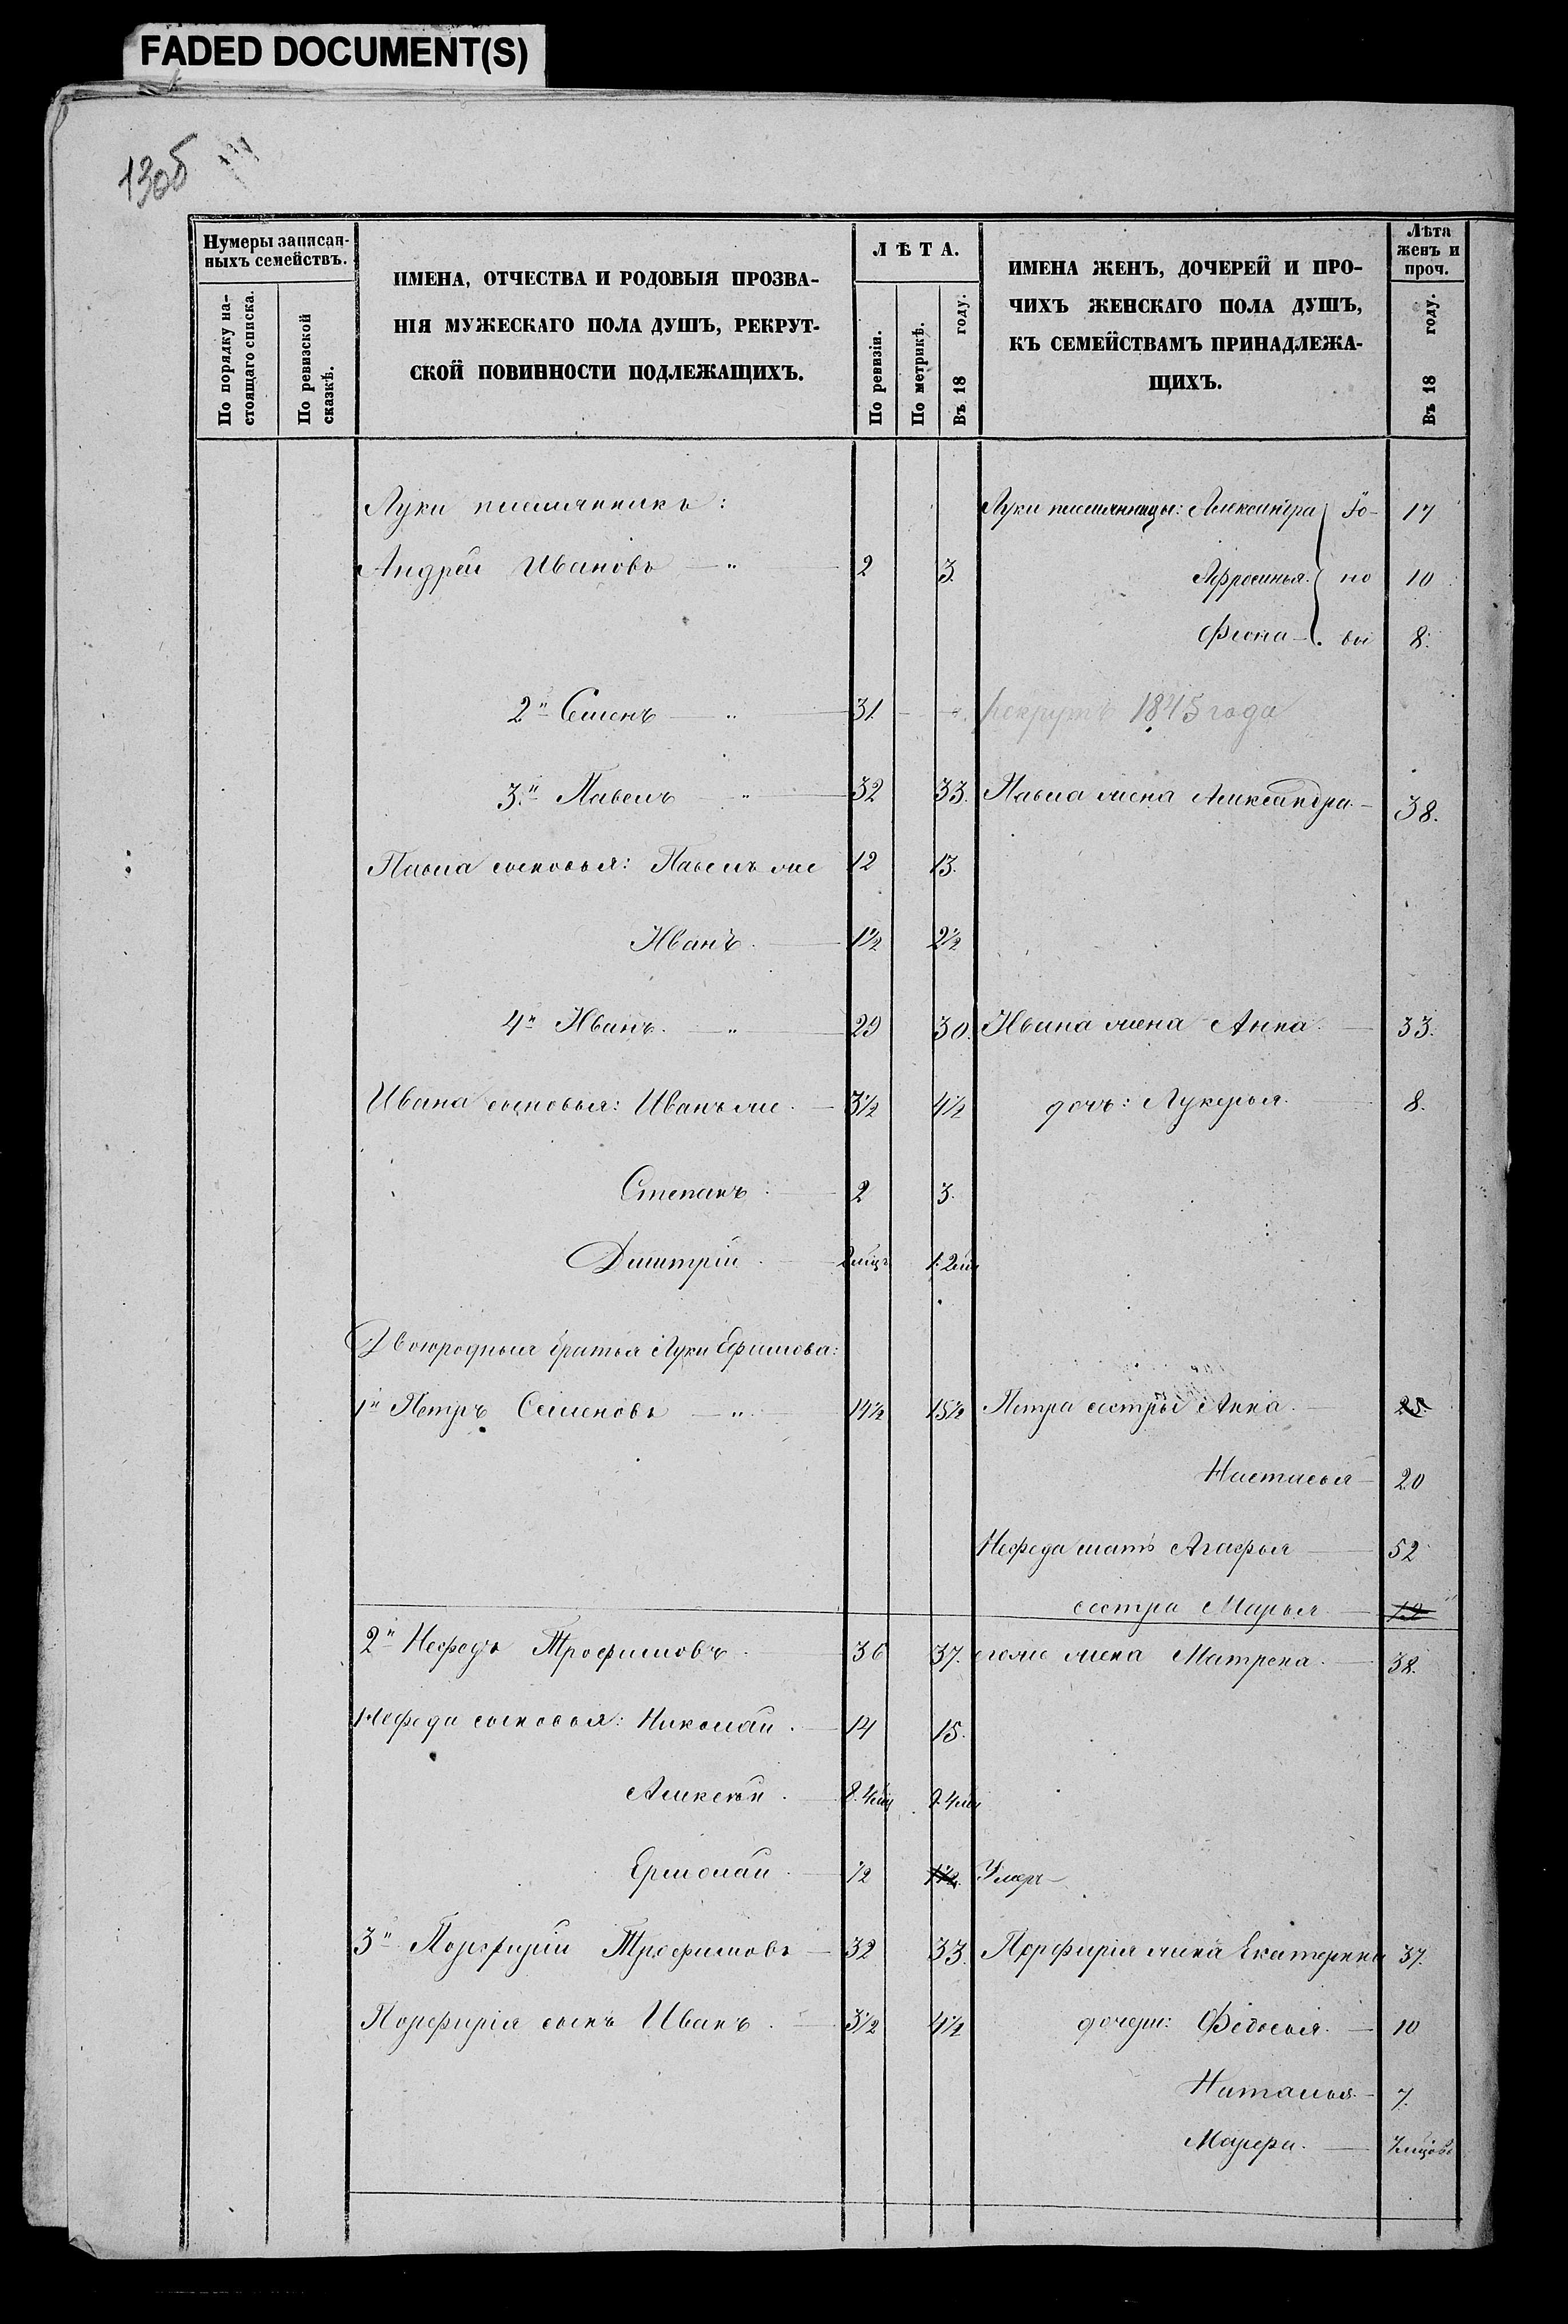 FADED DOCUMENT(S)
130б
Нумеры записан-
ныхъ семействъ.
По порядку на-
стоящаго списка.
По ревизской
сказкѣ.
ИМЕНА, ОТЧЕСТВА И РОДОВЫЯ ПРОЗВА-
НІЯ МУЖЕСКАГО ПОЛА ДУШЪ, РЕКРУТ-
СКОЙ ПОВИННОСТИ ПОДЛЕЖАЩИХЪ.
ЛѢТА.
По ревизіи.
По метрикѣ.
Въ 18 году.
ИМЕНА ЖЕНЪ, ДОЧЕРЕЙ И ПРО-
ЧИХЪ ЖЕНСКАГО ПОЛА ДУШЪ,
КЪ СЕМЕЙСТВАМЪ ПРИНАДЛЕЖА-
ЩИХЪ.
Лѣта
женъ и
проч.
Въ 18 году.
Луки племянникъ: Луки племянницы: Александра 17
Андрей Ивановъ — „ — 2 3. Афросинья. но 10
Фіона — вы 8.
2й Семенъ — „ — 31. — рекрутъ 1845 года
3й Павелъ — „ — 32 33. Павла жена Александра — 38.
Павла сыновья: Павелъ же 12 13.
Иванъ. — 1½ 2½
4й Иванъ. — „ — 29 30. Ивана жена Анна — 33.
Ивана сыновья: Иванъ же. — 3½ 4½ дочь: Лукерья. — 8.
Степанъ. — 2 3.
Дмитрій. — 2 мѣц. 1. 2 мц
Двоюродныя братья Луки Ефимова:
1й Петръ Семеновъ — „ — 14½ 15½ Петра сестры Анна. — 25.
Настасья — 20
Нефеда мать Агафья — 52
сестра Марья — 19
2й Нефедъ Трофимовъ. — 36 37. егоже жена Матрена. — 38.
Нефеда сыновья: Николай. — 14 15.
Алексѣй. — 8. 4 мц 9. 4 мц
Ермолай. — ½ 1½. Умеръ —
3й Порфирій Трофимовъ — 32 33. Порфирія жена Екатерина 37.
Порфирія сынъ Иванъ. — 3½ 4½ дочери: Федосья. — 10
Наталья. — 7.
Марфа. — 7 мѣцовъ